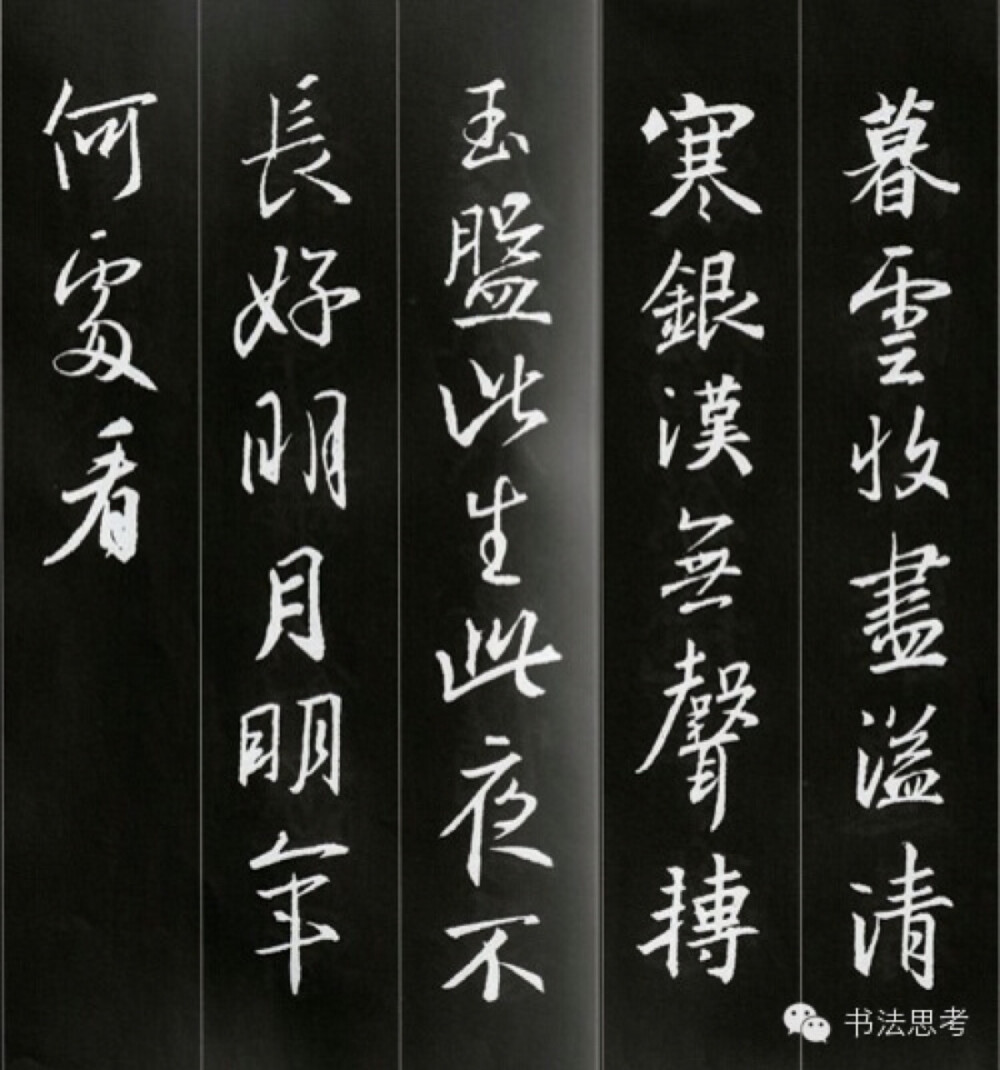 暮雲收盡溢清
寒銀漢無聲摶
玉盤此生此夜不
長好明月明年
何處看
书法思考